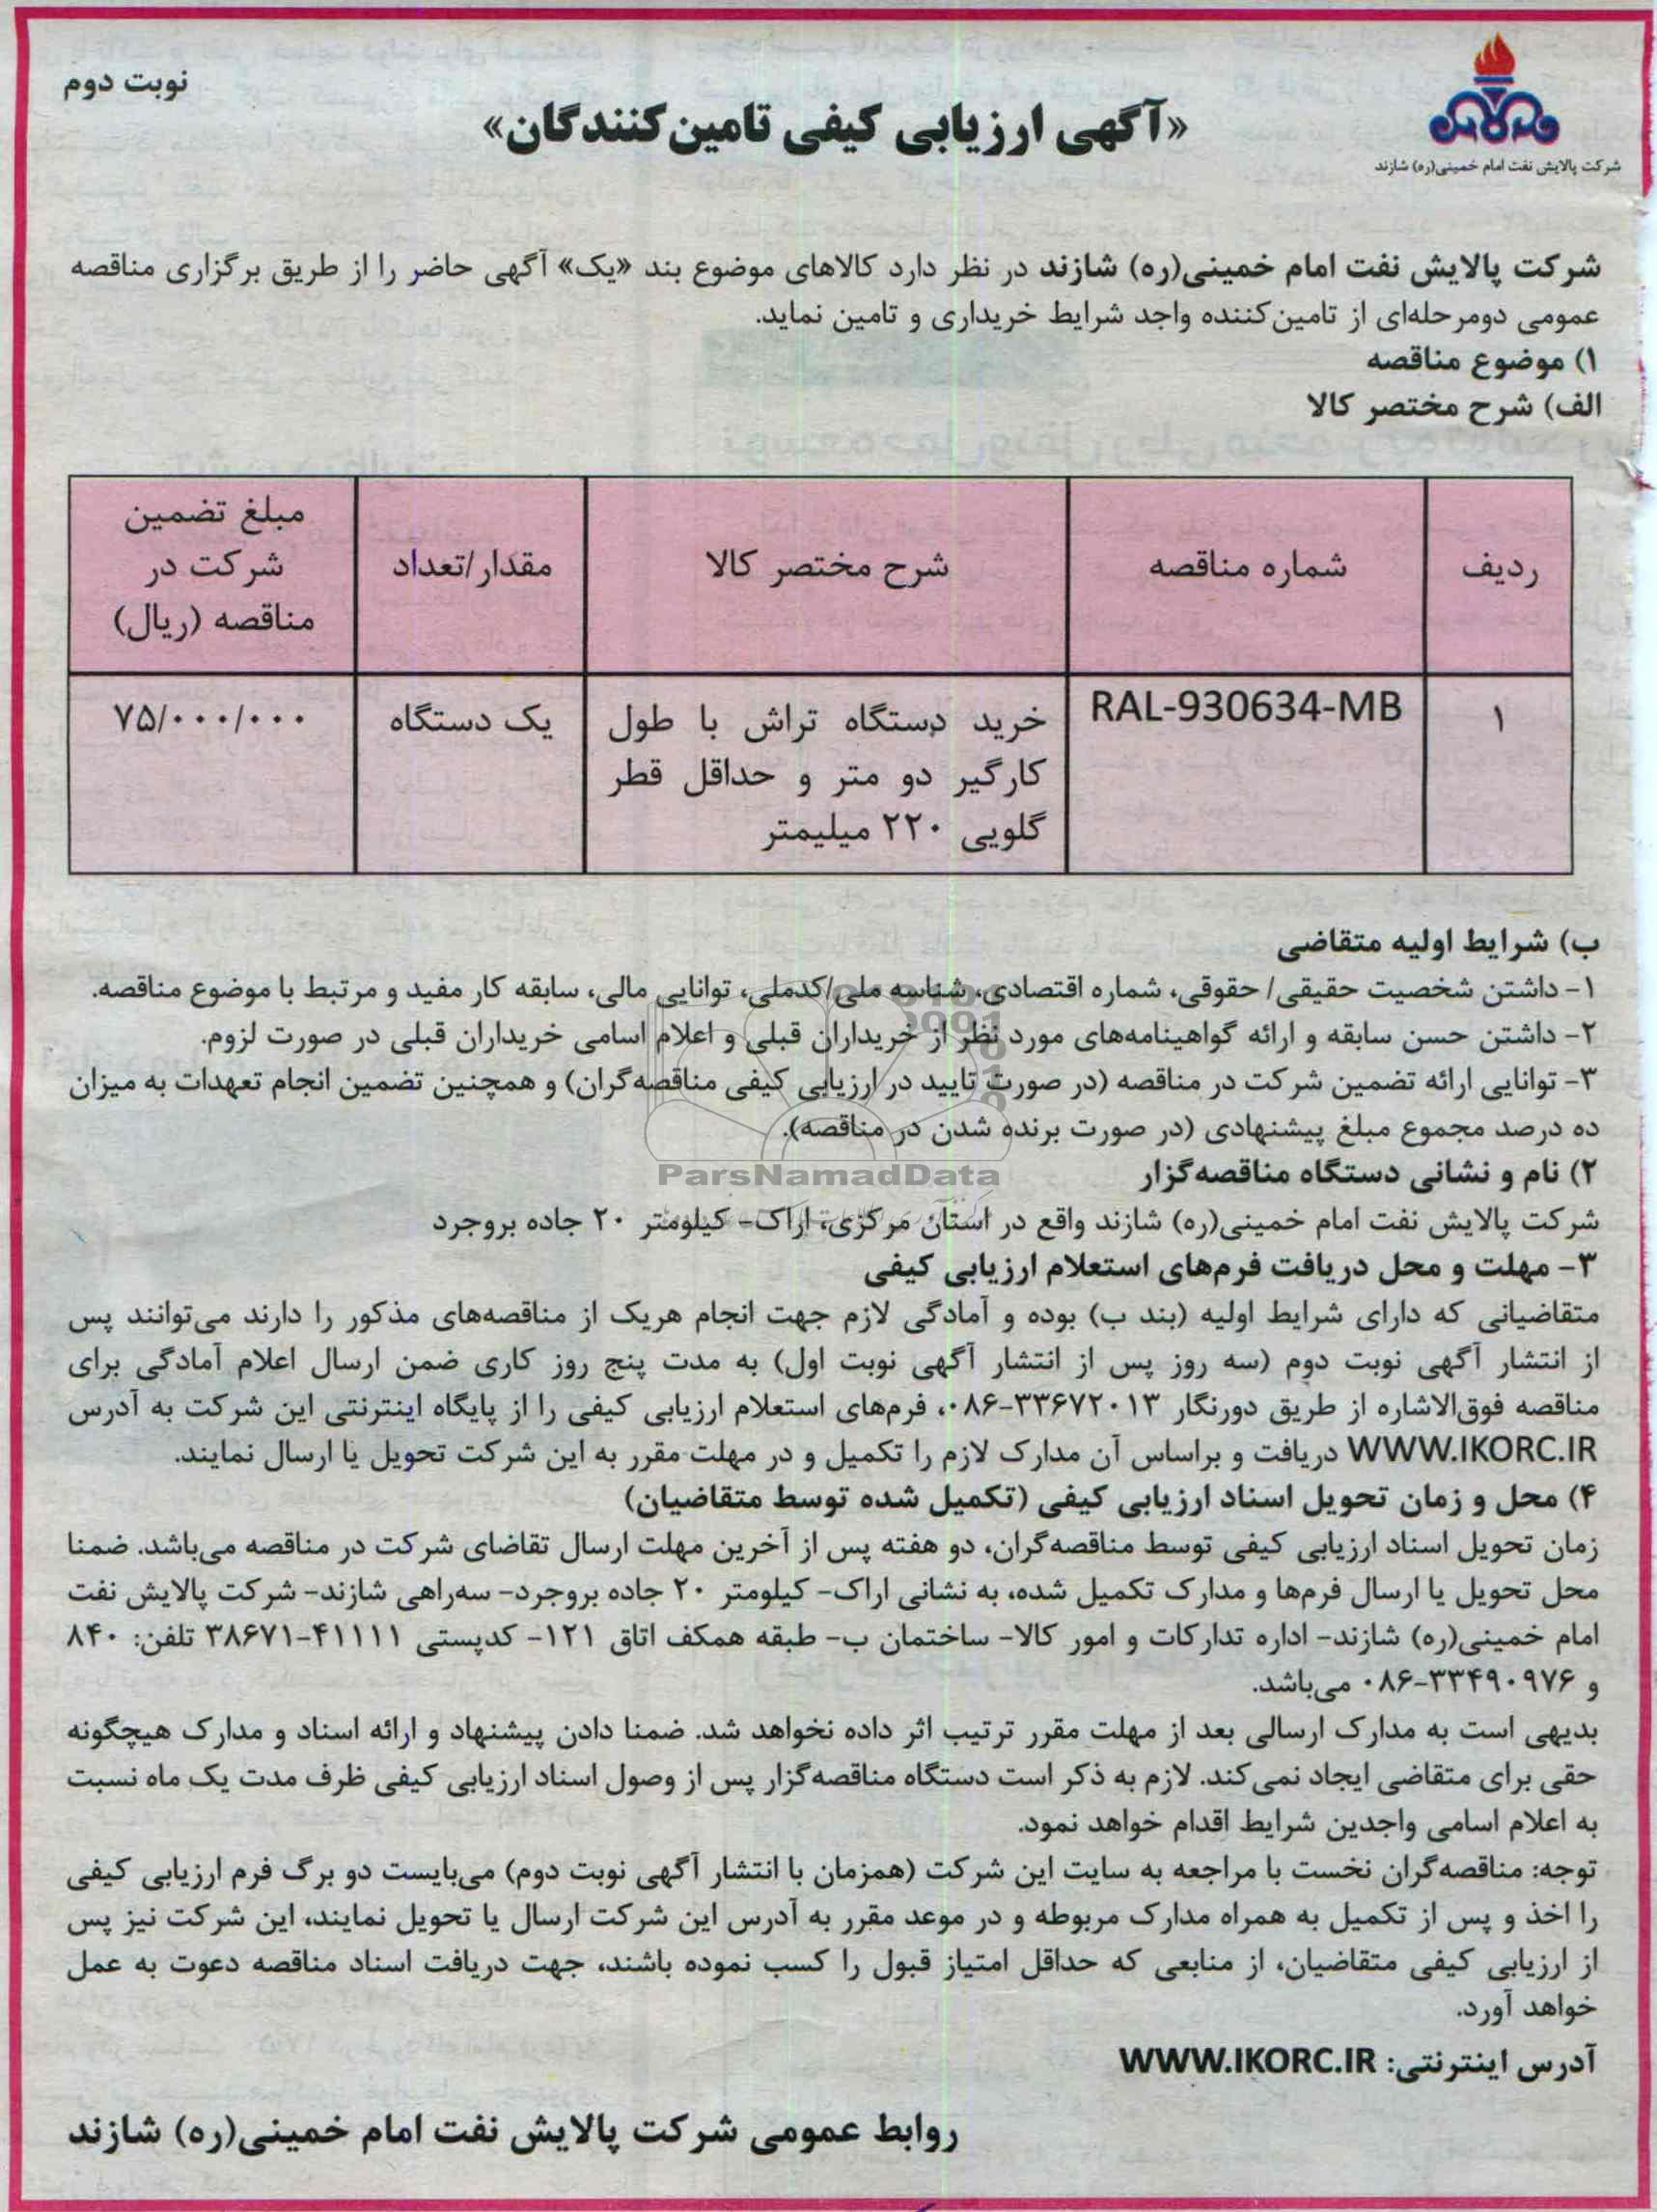 نوبت دوم
شرکت پالایش نفت امام خمینی(ره) شازند
«آگهی ارزیابی کیفی تامین‌کنندگان»
شرکت پالایش نفت امام خمینی(ره) شازند در نظر دارد کالاهای موضوع بند «یک» آگهی حاضر را از طریق برگزاری مناقصه
عمومی دومرحله‌ای از تامین‌کننده واجد شرایط خریداری و تامین نماید.
۱) موضوع مناقصه
الف) شرح مختصر کالا
ردیف	شماره مناقصه	شرح مختصر کالا	مقدار/تعداد	مبلغ تضمین
شرکت در
مناقصه (ریال)
۱	RAL-930634-MB	خرید دستگاه تراش با طول	یک دستگاه	۷۵/۰۰۰/۰۰۰
کارگیر دو متر و حداقل قطر
گلویی ۲۲۰ میلیمتر
ب) شرایط اولیه متقاضی
۱- داشتن شخصیت حقیقی/ حقوقی، شماره اقتصادی، شناسه ملی/کدملی، توانایی مالی، سابقه کار مفید و مرتبط با موضوع مناقصه.
۲- داشتن حسن سابقه و ارائه گواهینامه‌های مورد نظر از خریداران قبلی و اعلام اسامی خریداران قبلی در صورت لزوم.
۳- توانایی ارائه تضمین شرکت در مناقصه (در صورت تایید در ارزیابی کیفی مناقصه‌گران) و همچنین تضمین انجام تعهدات به میزان
ده درصد مجموع مبلغ پیشنهادی (در صورت برنده شدن در مناقصه).
ParsNamadData
۲) نام و نشانی دستگاه مناقصه‌گزار
شرکت پالایش نفت امام خمینی(ره) شازند واقع در استان مرکزی، اراک- کیلومتر ۲۰ جاده بروجرد
۳- مهلت و محل دریافت فرم‌های استعلام ارزیابی کیفی
متقاضیانی که دارای شرایط اولیه (بند ب) بوده و آمادگی لازم جهت انجام هریک از مناقصه‌های مذکور را دارند می‌توانند پس
از انتشار آگهی نوبت دوم (سه روز پس از انتشار آگهی نوبت اول) به مدت پنج روز کاری ضمن ارسال اعلام آمادگی برای
مناقصه فوق‌الاشاره از طریق دورنگار ۳۳۶۷۲۰۱۳-۰۸۶، فرم‌های استعلام ارزیابی کیفی را از پایگاه اینترنتی این شرکت به آدرس
WWW.IKORC.IR دریافت و براساس آن مدارک لازم را تکمیل و در مهلت مقرر به این شرکت تحویل یا ارسال نمایند.
۴) محل و زمان تحویل اسناد ارزیابی کیفی (تکمیل شده توسط متقاضیان)
زمان تحویل اسناد ارزیابی کیفی توسط مناقصه‌گران، دو هفته پس از آخرین مهلت ارسال تقاضای شرکت در مناقصه می‌باشد. ضمنا
محل تحویل یا ارسال فرم‌ها و مدارک تکمیل شده، به نشانی اراک- کیلومتر ۲۰ جاده بروجرد- سه‌راهی شازند- شرکت پالایش نفت
امام خمینی(ره) شازند- اداره تدارکات و امور کالا- ساختمان ب- طبقه همکف اتاق ۱۲۱- کدپستی ۴۱۱۱۱-۳۸۶۷۱ تلفن: ۸۴۰
و ۳۳۴۹۰۹۷۶-۰۸۶ می‌باشد.
بدیهی است به مدارک ارسالی بعد از مهلت مقرر ترتیب اثر داده نخواهد شد. ضمنا دادن پیشنهاد و ارائه اسناد و مدارک هیچگونه
حقی برای متقاضی ایجاد نمی‌کند. لازم به ذکر است دستگاه مناقصه‌گزار پس از وصول اسناد ارزیابی کیفی ظرف مدت یک ماه نسبت
به اعلام اسامی واجدین شرایط اقدام خواهد نمود.
توجه: مناقصه‌گران نخست با مراجعه به سایت این شرکت (همزمان با انتشار آگهی نوبت دوم) می‌بایست دو برگ فرم ارزیابی کیفی
را اخذ و پس از تکمیل به همراه مدارک مربوطه و در موعد مقرر به آدرس این شرکت ارسال یا تحویل نمایند، این شرکت نیز پس
از ارزیابی کیفی متقاضیان، از منابعی که حداقل امتیاز قبول را کسب نموده باشند، جهت دریافت اسناد مناقصه دعوت به عمل
خواهد آورد.
آدرس اینترنتی: WWW.IKORC.IR
روابط عمومی شرکت پالایش نفت امام خمینی(ره) شازند